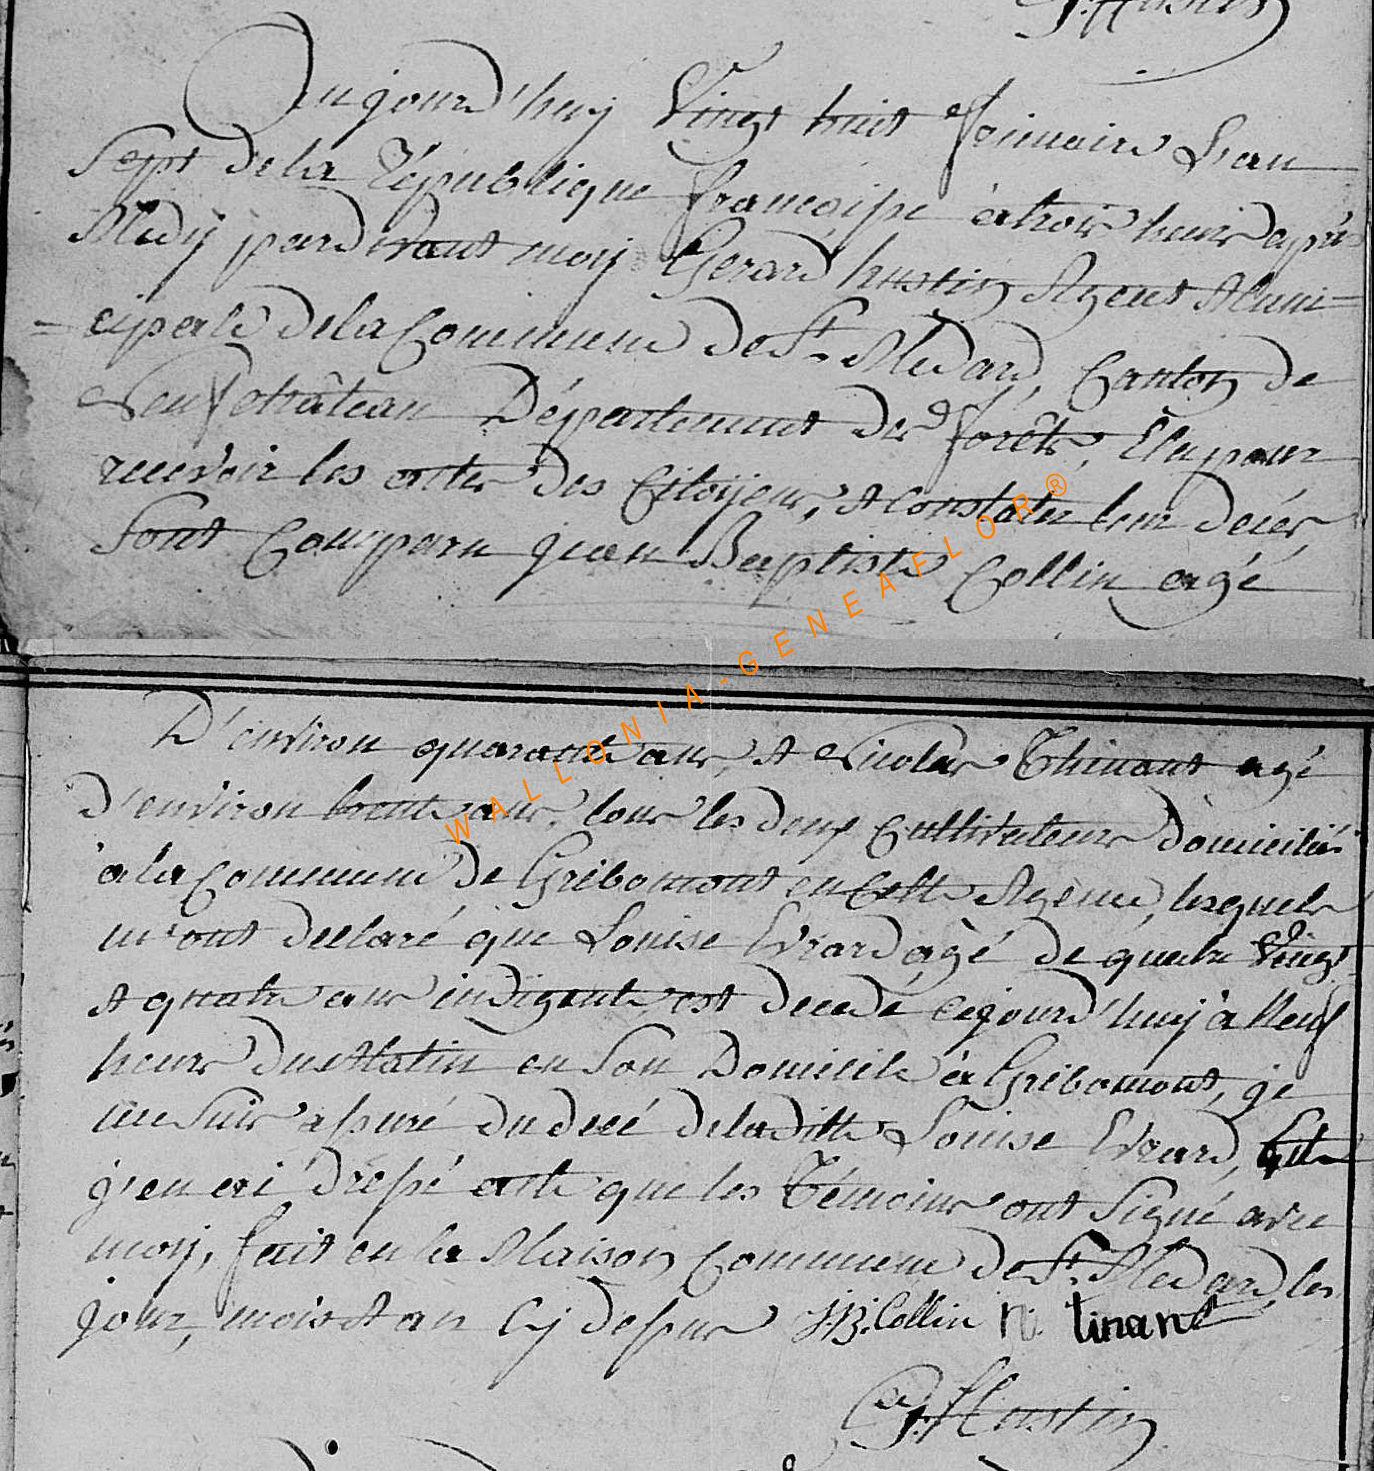 Aujourd'huy Vingt huit frimaire L'an
Sept de la République française à trois heures après
Midy pardevant moy Gerard hustin Agent Muni=
=cipale de la Commune de St. Medard, Canton de
Neufchâteau Département des forêts, Elu pour
recevoir les actes des Citoyens, et constater leur décès,
Sont Comparu jean Baptiste Collin agé
D'environ quarante ans, et Nicolas Thinant agé
D'environ trente ans, tous les deux Cultivateurs domiciliés
à la Commune de Gribomont en Cette Agence, lesquels
m'ont declaré que Louise Evrard agé de quatre Vingt
et quatre ans indigente est decedé cejourd'huy à Neuf
heures du Matin en Son Domicile à Gribomont, je
me suis assuré du decé de la ditte Louise Evrard, 
j'en ai dressé acte que les Témoins ont Signé avec
moy, fait en la Maison Commune de St. Medard, les
jour, mois et an Cy dessus J.B. Collin n. tinant
G. Hustin
WALLONIA-GENEAFLOR®